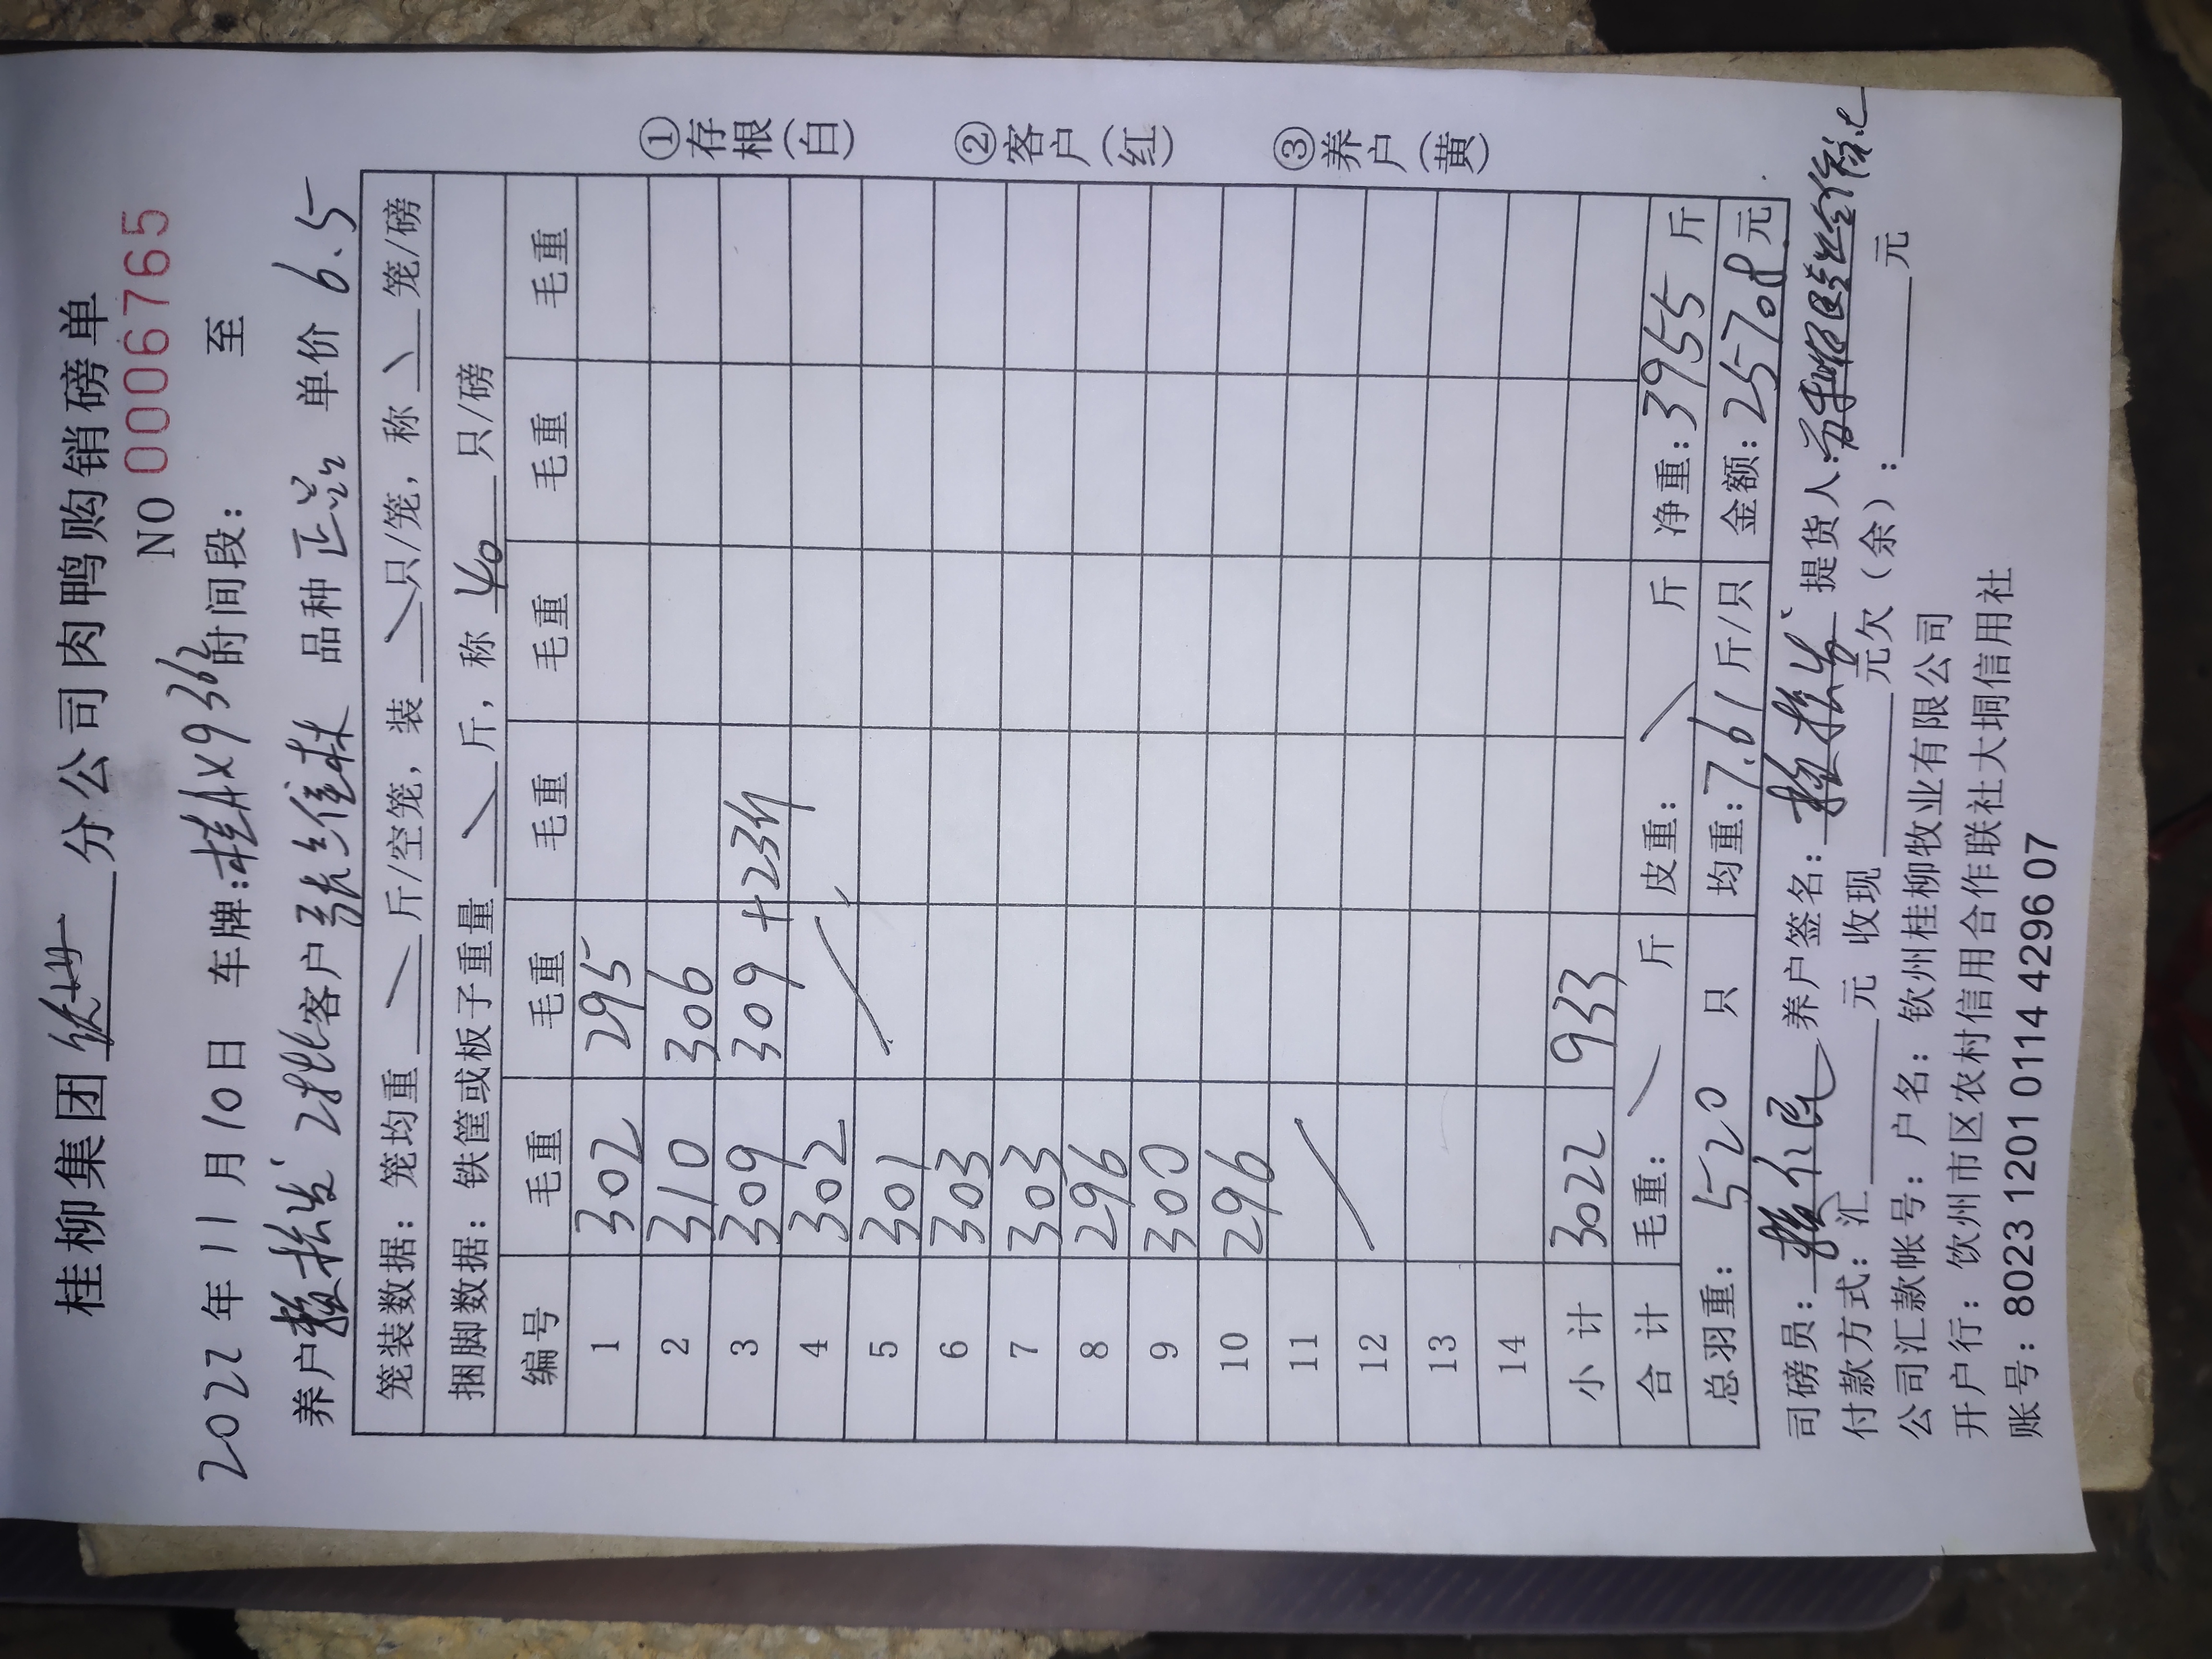 桂柳集团 钦州 分公司肉鸭购销磅单
NO 0006765
2022年11月10日 车牌:桂AX9362 时间段: 至
养户 赖振发 2批 客户 张维林 品种 正品 单价 6.5
笼装数据: 笼均重 斤/空笼, 装 只/笼, 称 笼/磅
捆脚数据: 铁筐或板子重量 斤, 称 40 只/磅
编号 毛重 毛重 毛重 毛重 毛重 毛重
1 302 295
2 310 306
3 309 309 +23
4 302
5 301
6 303
7 303
8 296
9 300
10 296
11
12
13
14
小计 3022 933
合计 毛重: 斤 皮重: 斤 净重: 3955 斤
总羽重: 520 只 均重: 7.61 斤/只 金额: 25708 元
①存根(白)
②客户(红)
③养户(黄)
司磅员: 养户签名: 赖振发 提货人:
付款方式: 汇 元 收现 元欠(余): 元
公司汇款帐号: 户名: 钦州桂柳牧业有限公司
开户行: 钦州市区农村信用合作联社大垌信用社
账号: 8023 1201 0114 4296 07